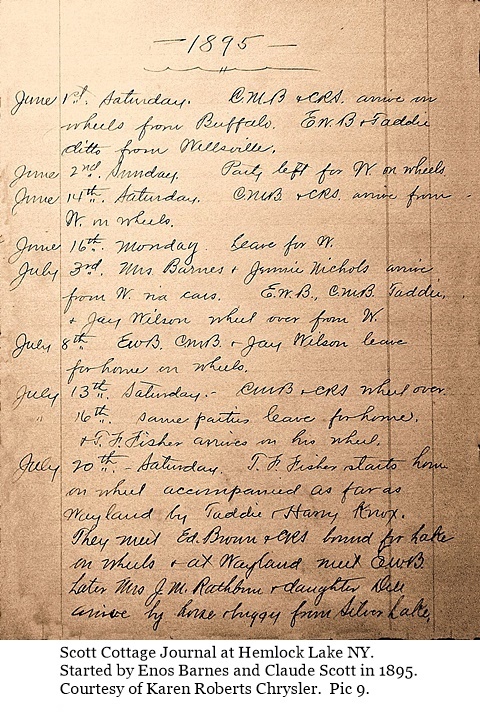 — 1895 —
June 1st. Saturday. C.M.B & CRS. arrive on
wheels from Buffalo. E.W.B & Taddie
ditto from Wellsville.
June 2nd. Sunday. Party left for W. on wheels.
June 14th. Saturday. C.M.B & CRS. arrive from
W. on wheels.
June 16th. Monday. Leave for W.
July 3rd. Mrs. Barnes & Jennie Nichols arrive
from W. via cars. E.W.B., C.M.B. Taddie,
& Jay Wilson wheel over from W.
July 8th EWB, C.M.B. & Jay Wilson leave
for home on wheels.
July 13th. Saturday. - C.M.B & CRS wheel over.
" 16th. same parties leave for home.
& T. F. Fisher arrives on his wheel.
July 20th. - Saturday. T. F. Fisher starts home
on wheel accompanied as far as
Wayland by Taddie & Harry Knox.
They meet Ed. Brown & CRS bound for Lake
on wheels & at Wayland meet EWB.
Later Mrs J. M. Rathbun & daughter Dell
arrive by horse & buggy from Silver Lake.
Scott Cottage Journal at Hemlock Lake NY.
Started by Enos Barnes and Claude Scott in 1895.
Courtesy of Karen Roberts Chrysler. Pic 9.